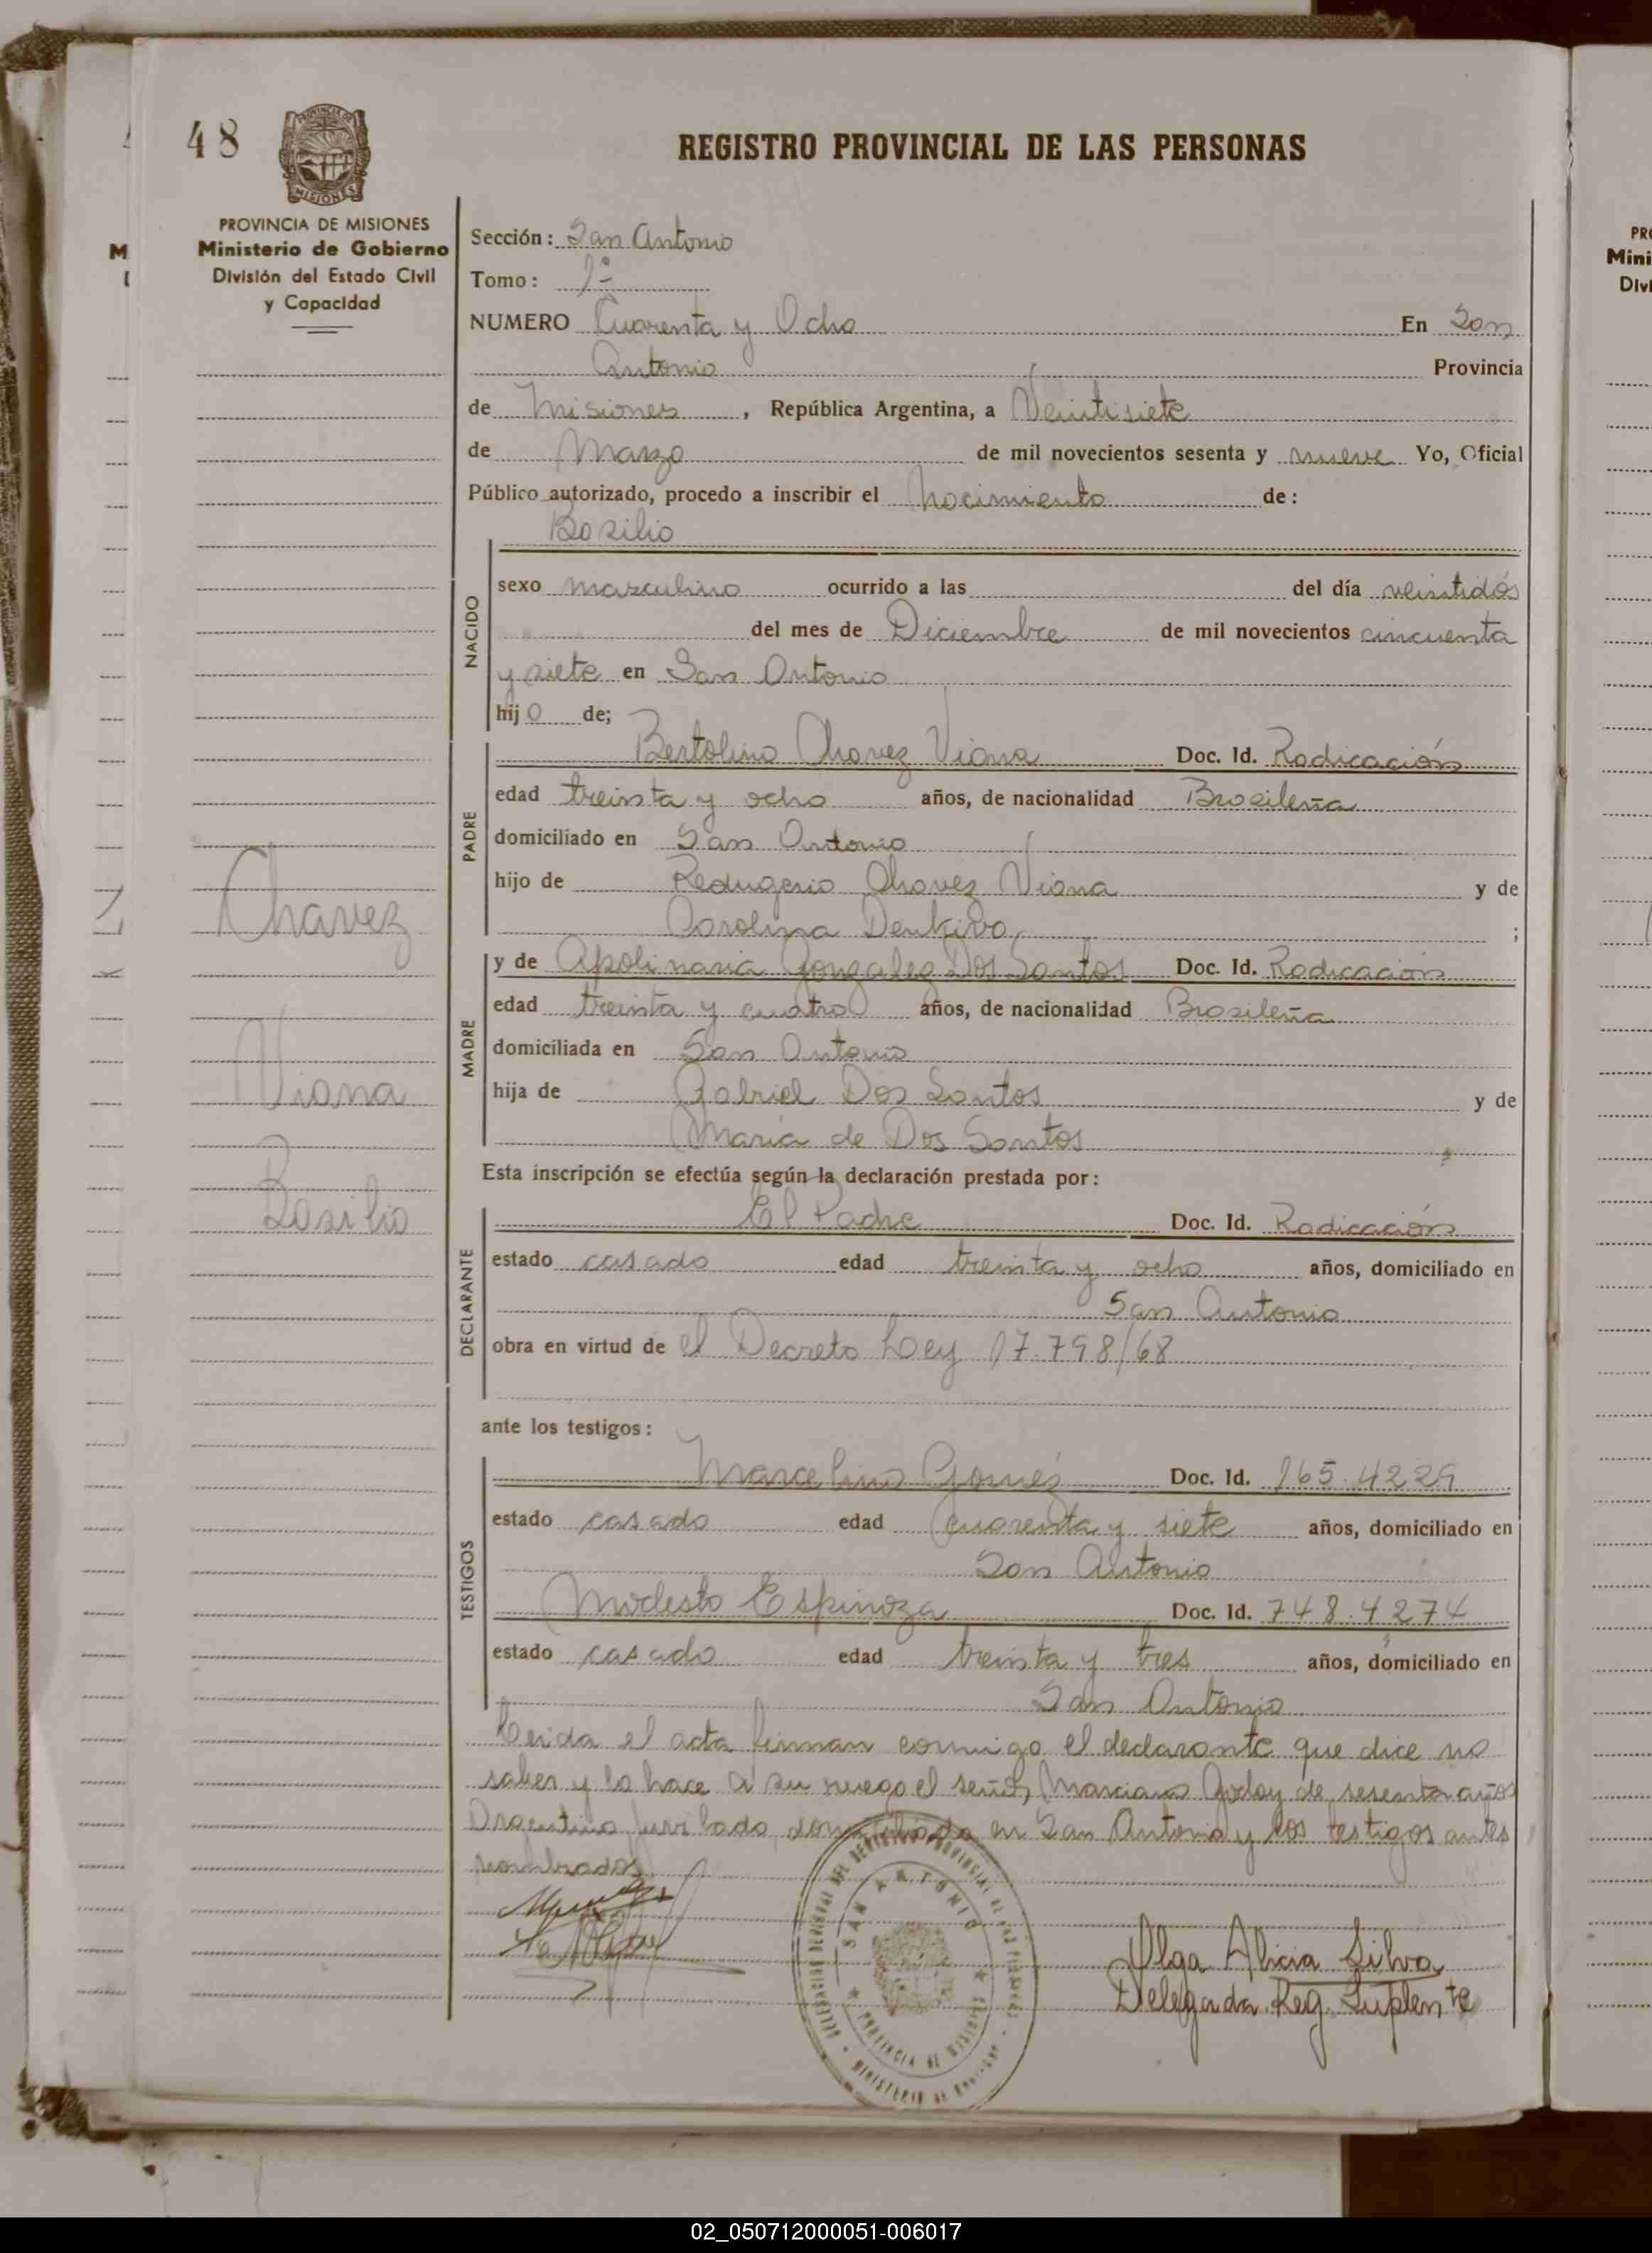 48
PROVINCIA DE MISIONES
Ministerio de Gobierno
División del Estado Civil
y Capacidad
REGISTRO PROVINCIAL DE LAS PERSONAS
Sección: San Antonio
Tomo: 1º
NUMERO Cuarenta y Ocho En San
Antonio Provincia
de Misiones, República Argentina, a Veintisiete
de Marzo de mil novecientos sesenta y nueve Yo, Oficial
Público autorizado, procedo a inscribir el Nacimiento de:
Basilio
NACIDO
sexo masculino ocurrido a las del día veintidós
del mes de Diciembre de mil novecientos cincuenta
y siete en San Antonio
hijo de;
PADRE
Bertolino Chavez Viana Doc. Id. Radicación
edad treinta y ocho años, de nacionalidad Brasileña
domiciliado en San Antonio
hijo de Redugerio Chavez Viana y de
Carolina ;
MADRE
y de Apolinaria Gonzalez Dos Santos Doc. Id. Radicación
edad treinta y cuatro años, de nacionalidad Brasileña
domiciliada en San Antonio
hija de Gabriel Dos Santos y de
Maria de Dos Santos ;
Esta inscripción se efectúa según la declaración prestada por:
DECLARANTE
El Padre Doc. Id. Radicación
estado casado edad treinta y ocho años, domiciliado en
San Antonio
obra en virtud de el Decreto Ley 17.798/68
ante los testigos:
TESTIGOS
Marcelino Gomés Doc. Id. 165.4229
estado casado edad cuarenta y siete años, domiciliado en
San Antonio
Modesto Espinoza Doc. Id. 748.4274
estado casado edad treinta y tres años, domiciliado en
San Antonio
Leida el acta firman conmigo el declarante que dice no
saber y lo hace a su ruego el señor Marciano Godoy de sesenta años
Argentino Jubilado, domiciliado en San Antonio y los testigos antes
nombrados
Chavez
Viana
Basilio
SAN ANTONIO
PROVINCIA DE MISIONES
Olga Alicia Silva
Delegada Reg. Suplente
02_050712000051-006017